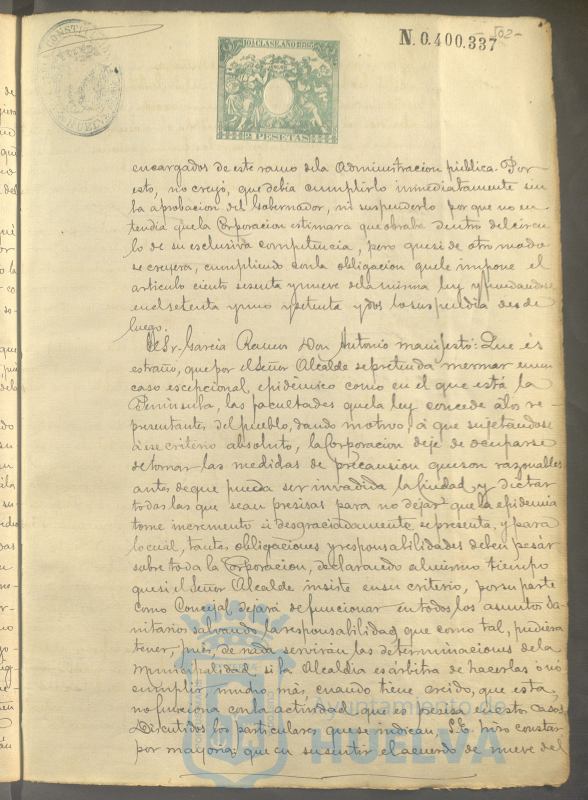 N. 0.400.337
102-
10ª CLASE. AÑO 1885
2 PESETAS
encargados de este ramo dela Administracion pública. Por
esto, no creyó, que debia cumplirlo inmediatamente sin
la aprobacion del Gobernador, ni suspenderlo por que no en-
tendia que la Corporacion estimara que obraba dentro del círcu
lo de su esclusiva competencia, pero que si de otro modo
se creyera, cumpliendo con la obligacion que le impone el
artículo ciento sesenta y nueve dela misma ley y fundandose
en el setenta y uno y setenta y dos la suspendia desde
luego.
El Sr. García Ramos Don Antonio manifestó: Que és
estraño, que por el Señor Alcalde se pretenda mermar en un
caso escepcional, epidémico como en el que está la
Península, las facultades que la ley concede á los re-
presentantes del pueblo, dando motivo, á que sujetandose
á ese criterio absoluto, la Corporacion deje de ocuparse
de tomar las medidas de precausion que son razonables
antes de que pueda ser invadida la Ciudad, y dictar
todas las que sean presisas para no dejar que la epidemia
tome incremento si desgraciadamente se presenta, y para
lo cual, tantas obligaciones y responsabilidades deben pesár
sobre toda la Corporacion, declarando al mismo tiempo
que si el Señor Alcalde insiste en su criterio, por su parte
como Concejal dejará de funcionar en todos los asuntos Sa-
nitarios salvando la responsabilidad que como tal, pudiera
tener, pues, de nada servirán las determinaciones de la
Municipalidad, si la Alcaldia es árbitra de hacerlas ó nó
cumplir, mucho más, cuando tiene creido, que esta,
no funciona con la actividad que es presisa en estos casos
Discutidos los particulares que se indican, S.E. hizo constar
por mayoria; que en su sentir el acuerdo de nueve del
Ayuntamiento de
HUELVA